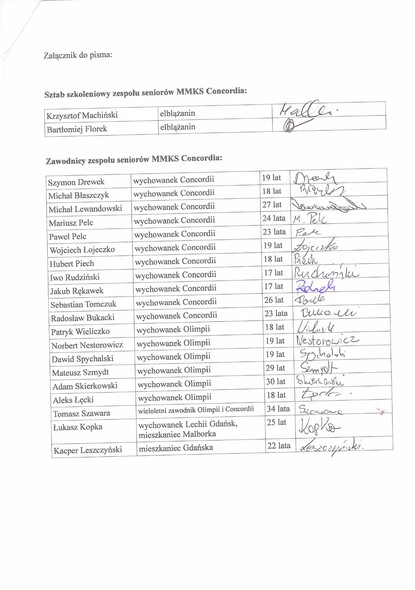 Załącznik do pisma:
Sztab szkoleniowy zespołu seniorów MMKS Concordia:
Krzysztof Machiński elblążanin
Bartłomiej Florek elblążanin
Zawodnicy zespołu seniorów MMKS Concordia:
Szymon Drewek wychowanek Concordii 19 lat
Michał Błaszczyk wychowanek Concordii 18 lat
Michał Lewandowski wychowanek Concordii 27 lat
Mariusz Pelc wychowanek Concordii 24 lata M. Pelc
Paweł Pelc wychowanek Concordii 23 lata Pelc
Wojciech Łojeczko wychowanek Concordii 19 lat Łojeczko
Hubert Piech wychowanek Concordii 18 lat Piech
Iwo Rudziński wychowanek Concordii 17 lat Rudziński
Jakub Rękawek wychowanek Concordii 17 lat
Sebastian Tomczuk wychowanek Concordii 26 lat
Radosław Bukacki wychowanek Concordii 23 lata
Patryk Wieliczko wychowanek Olimpii 18 lat
Norbert Nestorowicz wychowanek Olimpii 19 lat Nestorowicz
Dawid Spychalski wychowanek Olimpii 19 lat
Mateusz Szmydt wychowanek Olimpii 29 lat
Adam Skierkowski wychowanek Olimpii 30 lat
Aleks Łęcki wychowanek Olimpii 18 lat
Tomasz Szawara wieloletni zawodnik Olimpii i Concordii 34 lata
Łukasz Kopka wychowanek Lechii Gdańsk, 25 lat Kopka
mieszkaniec Malborka
Kacper Leszczyński mieszkaniec Gdańska 22 lata Leszczyński